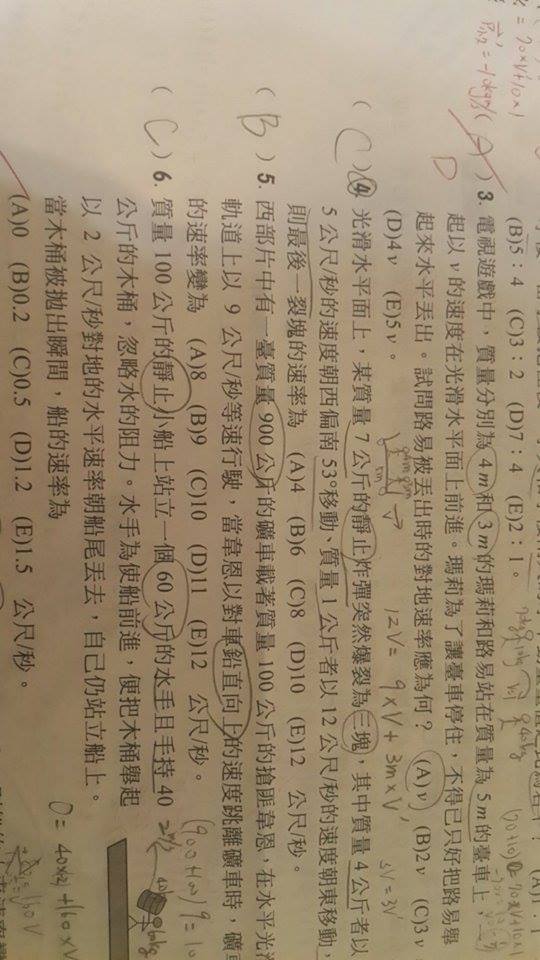 (B)5：4 (C)3：2 (D)7：4 (E)2：1。
(A) 3. 電視遊戲中，質量分別為 4 m和 3 m的瑪莉和路易站在質量為 5 m的臺車上，一
D
起以 v 的速度在光滑水平面上前進。瑪莉為了讓臺車停住，不得已只好把路易舉
起來水平丟出。試問路易被丟出時的對地速率應為何？ (A)v (B)2v (C)3v
(D)4v (E)5v。
12V = 9×V + 3m×V'
3V = 3V'
(C) 4. 光滑水平面上，某質量 7 公斤的靜止炸彈突然爆裂為三塊，其中質量 4 公斤者以
5 公尺/秒的速度朝西偏南 53°移動、質量 1 公斤者以 12 公尺/秒的速度朝東移動，
則最後一裂塊的速率為 (A)4 (B)6 (C)8 (D)10 (E)12 公尺/秒。
(B) 5. 西部片中有一臺質量 900 公斤的礦車載著質量 100 公斤的搶匪韋恩，在水平光滑
軌道上以 9 公尺/秒等速行駛，當韋恩以對車鉛直向上的速度跳離礦車時，礦
的速率變為 (A)8 (B)9 (C)10 (D)11 (E)12 公尺/秒。
(C) 6. 質量 100 公斤的靜止小船上站立一個 60 公斤的水手且手持 40
公斤的木桶，忽略水的阻力。水手為使船前進，便把木桶舉起
以 2 公尺/秒對地的水平速率朝船尾丟去，自己仍站立船上。
當木桶被拋出瞬間，船的速率為
(A)0 (B)0.2 (C)0.5 (D)1.2 (E)1.5 公尺/秒。